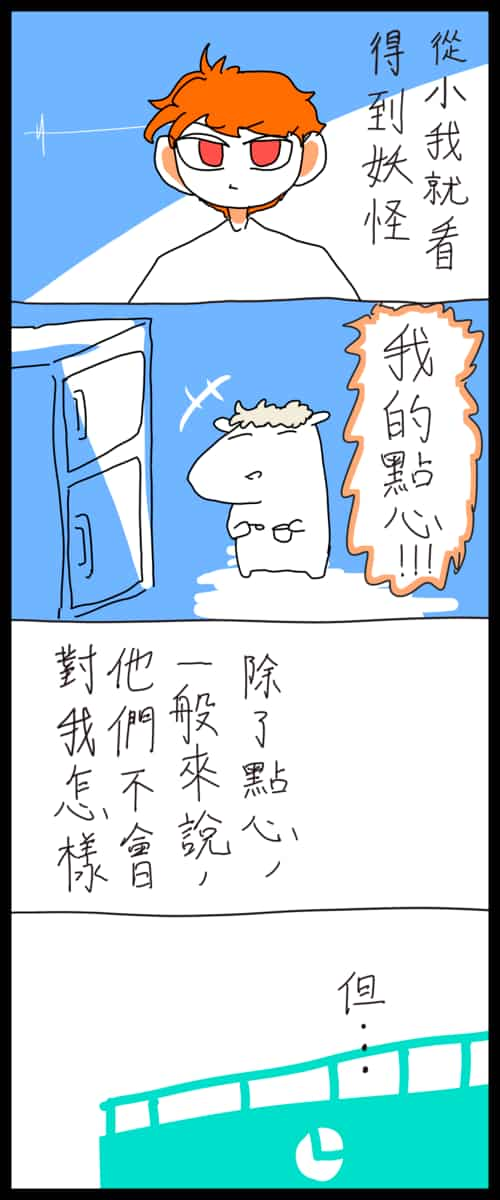 從小我就看
得到妖怪
我的點心!!!
除了點心,
一般來說,
他們不會
對我怎樣
但...